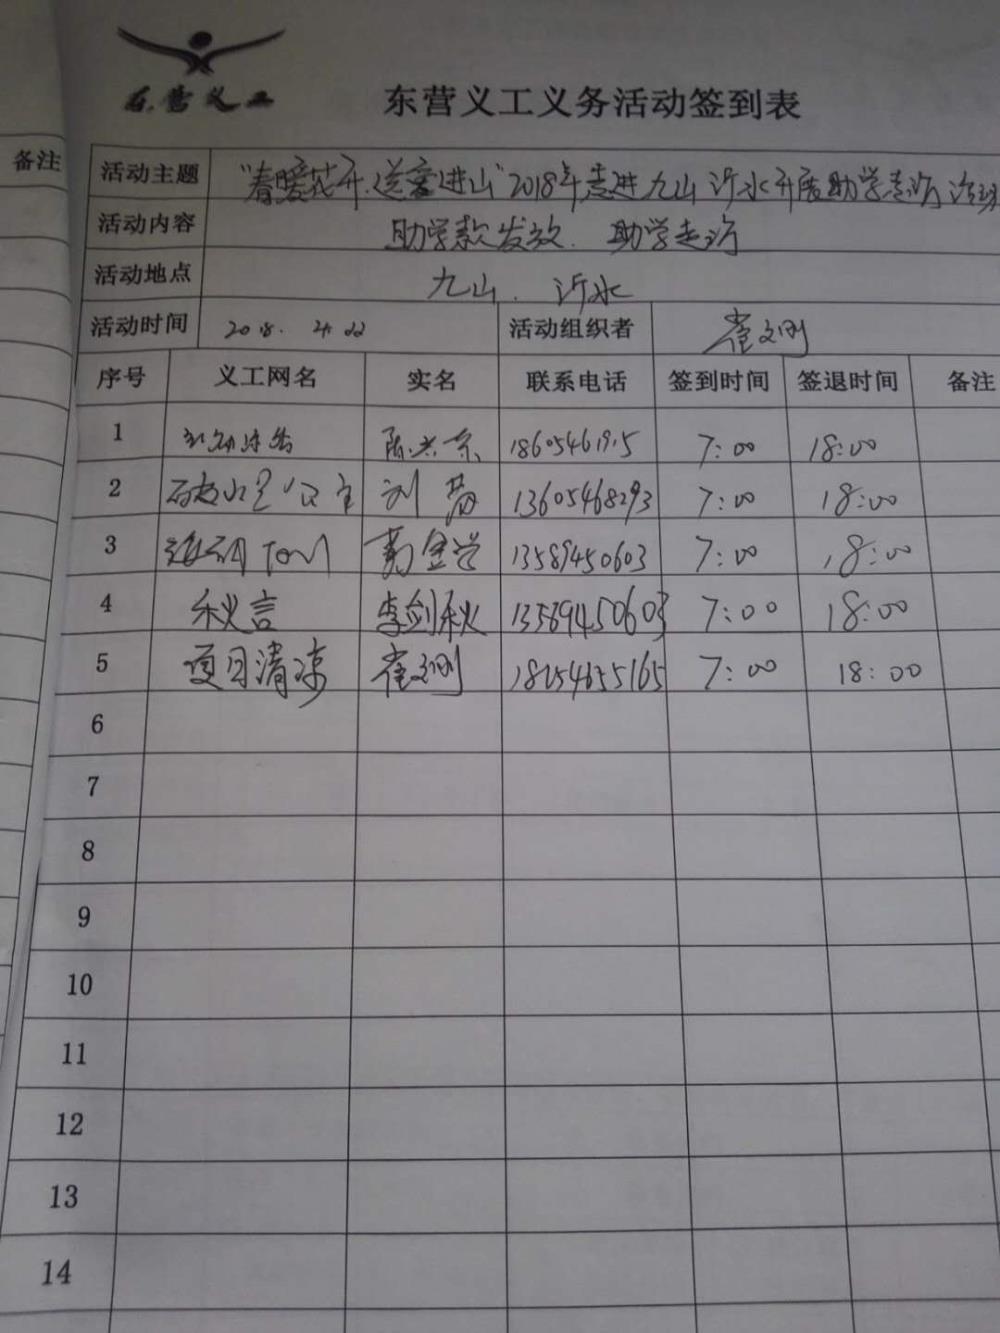 东营义工
东营义工义务活动签到表
备注
活动主题 "春暖花开.送爱进山"2018年走进九山 沂水开展助学走访活动
活动内容 助学款发放. 助学走访
活动地点 九山. 沂水
活动时间 2018. 4.22 活动组织者 崔文刚
序号 义工网名 实名 联系电话 签到时间 签退时间 备注
1 陈兴京 18605461915 7:00 18:00
2 公主 刘 13605468293 7:00 18:00
3 Tom 13589450603 7:00 18:00
4 秋言 李剑秋 13589450603 7:00 18:00
5 夏日清凉 崔文刚 18254655165 7:00 18:00
6
7
8
9
10
11
12
13
14